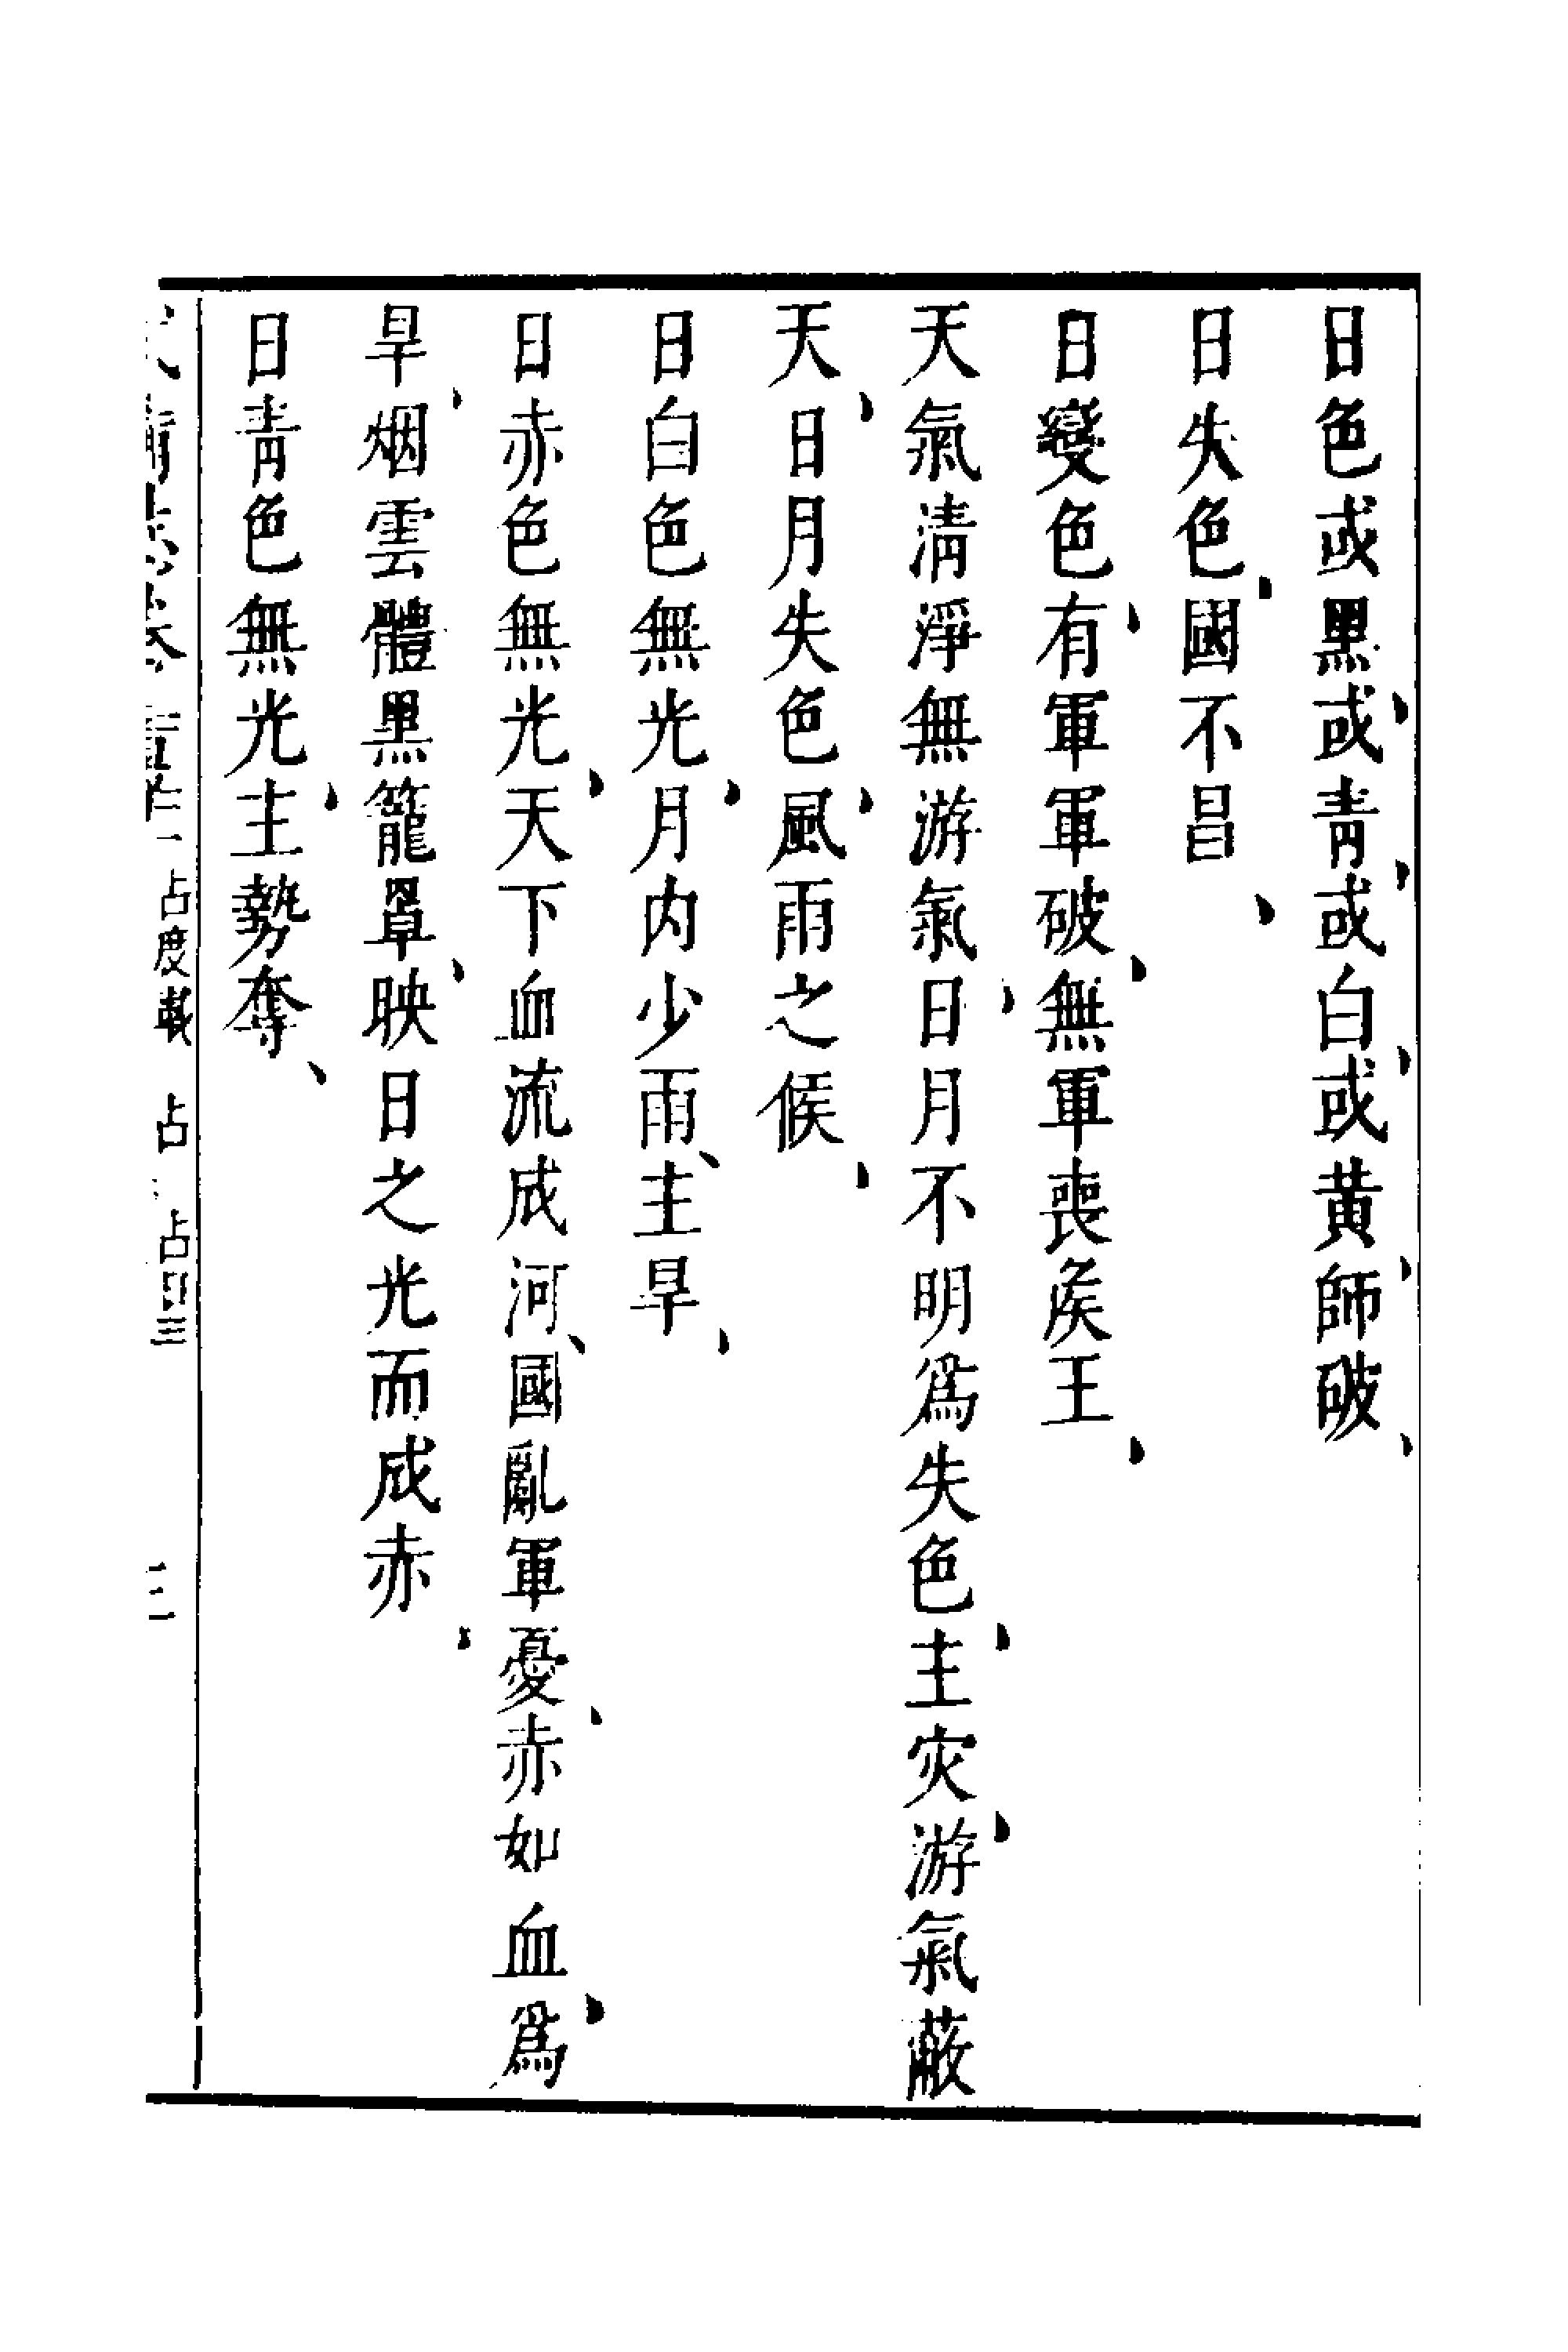 日色或黑、或青、或白、或黄、師破、
日失色、國不昌、
日變色、有軍軍破、無軍喪矦王、
天氣清淨無游氣、日月不明爲失色、主灾、游氣蔽
天、日月失色、風雨之候、
日白色無光、月内少雨、主旱、
日赤色無光、天下血流成河、國亂軍憂、赤如血、爲
旱、烟雲體黑籠罩、映日之光而成赤、
日青色無光、主勢奪、
占度載 占 占日三